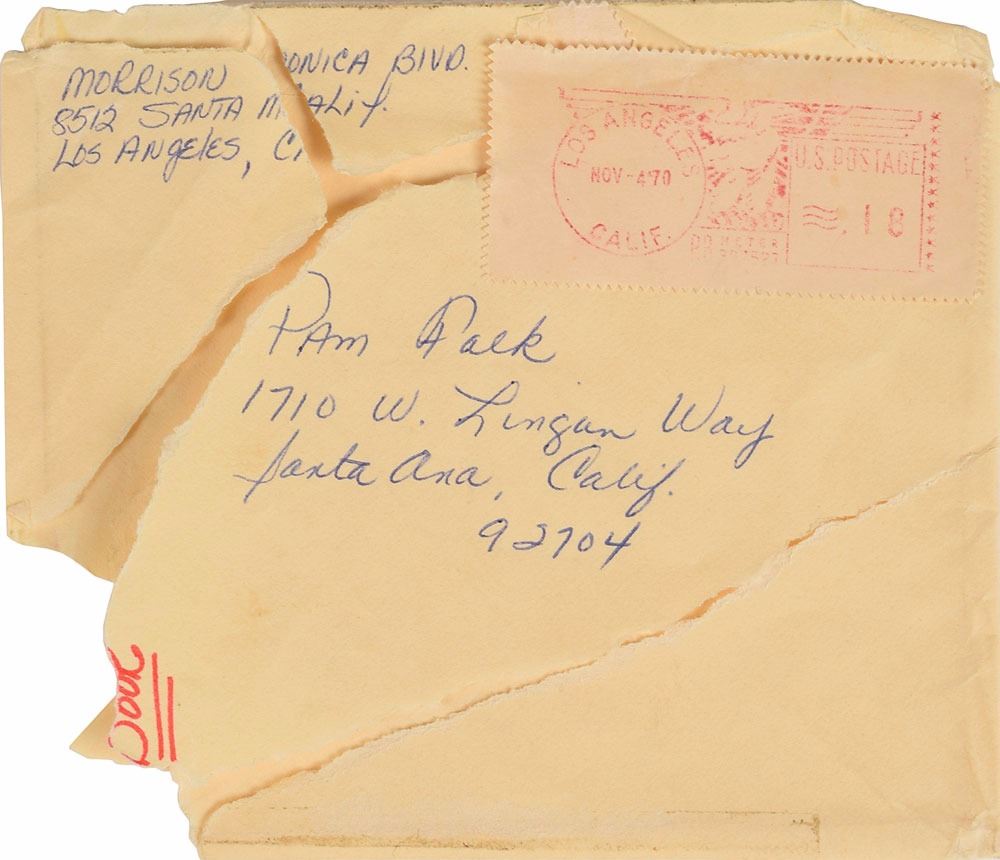 MORRISON
8512 SANTA MONICA BLVD.
LOS ANGELES, CALIF.
LOS ANGELES
NOV -4'70
CALIF.
U.S. POSTAGE
.18
P.B. METER
Pam Falk
1710 W. Lingan Way
Santa Ana, Calif.
92704